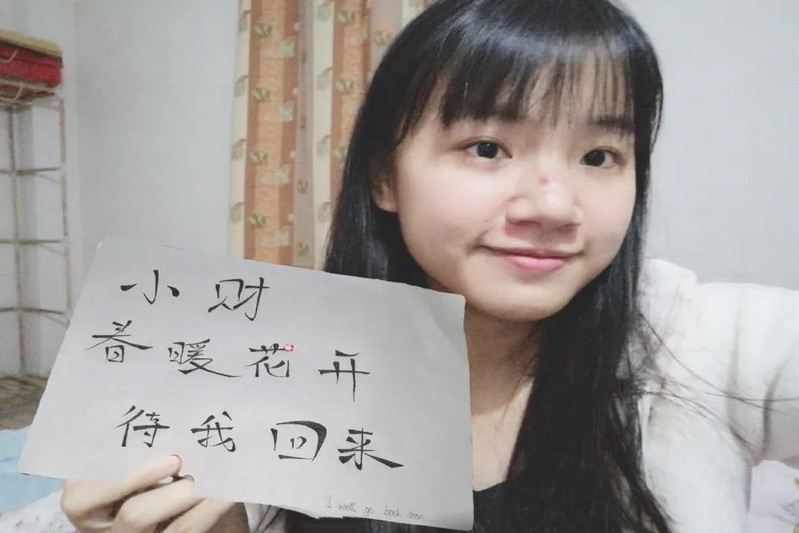 小财
春暖花开
待我回来
I will go back soon